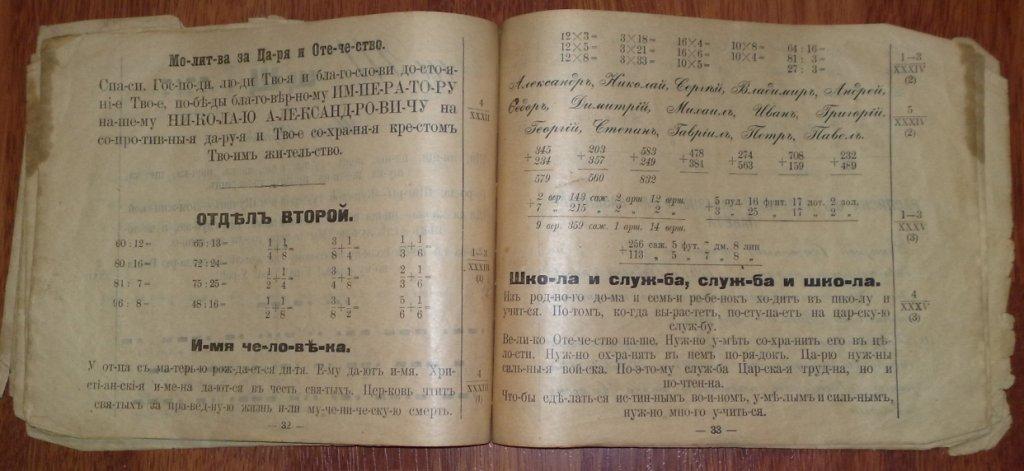 Мо-лит-ва за Ца-ря и Оте-че-ство.
Спа-си, Гос-по-ди, лю-ди Тво-я и бла-го-сло-ви до-сто-я-
ні-е Тво-е, по-бѣ-ды бла-го-вѣр-ному ИМ-ПЕ-РА-ТО-РУ
на-ше-му НИ-КО-ЛА-Ю А-ЛЕ-КСАНД-РО-ВИ-ЧУ на
со-про-тив-ны-я да-ру-я и Тво-е со-хра-ня-я кре-стомъ
Тво-имъ жи-тель-ство.
4
XXXII
ОТДѢЛЪ ВТОРОЙ.
60 : 12 = 65 : 13 = 1/4 + 1/8 = 3/8 + 1/4 = 1/3 + 1/6 =
80 : 16 = 72 : 24 = 1/2 + 1/4 = 3/4 + 1/8 = 2/3 + 1/6 =
84 : 7 = 75 : 25 =
96 : 8 = 48 : 16 = 1/2 + 1/8 = 3/8 + 4/2 = 5/6 + 1/6 =
1—3
XXXIII
И-мя че-ло-вѣ-ка.
У от-ца съ ма-терь-ю рож-да-ет-ся ди-тя. Е-му да-ютъ и-мя. Хри-
сті-ан-скі-я и-ме-на да-ют-ся въ честь свя-тыхъ. Цер-ковь чтитъ
свя-тыхъ за пра-вед-ну-ю жизнь и-ли му-че-ни-че-ску-ю смерть.
4
XXXIII
— 32 —
12×3= 3×18= 16×4= 10×8= 64 : 16=
12×5= 3×21 16×6= 10×4= 81 : 3=
12×8= 3×33 10×5= 27 : 3=
1—3
XXXIV
(2)
Александръ, Николай, Сергѣй, Владимиръ, Андрей,
Ѳедоръ, Димитрій, Михаилъ, Иванъ, Григорій,
Георгій, Степанъ, Гавріилъ, Петръ, Павелъ.
5
XXXIV
(2)
+345 +203 +583 +478 +274 +708 +232
234 357 249 384 563 159 489
579 560 832
+2 вер. 143 саж. 2 арш 12 верш. +5 пуд. 16 фунт. 17 лот. 2 зол.
7 „ 215 „ 2 „ 2 „ 3 „ 25 „ 17 „ 2 „
9 вер. 359 саж. 1 арш. 14 верш.
+256 саж. 5 фут. 7 дм. 8 лин
113 „ 5 „ 7 „ 8 „
1—3
XXXV
(3)
Шко-ла и служ-ба, служ-ба и шко-ла.
Изъ род-но-го до-ма и семь-и ре-бе-нокъ хо-дитъ въ шко-лу и
учит-ся. По-томъ, ко-гда вы-рас-тетъ, по-сту-па-етъ на цар-ску-ю
служ-бу.
Ве-ли-ко Оте-че-ство на-ше. Нуж-но у-мѣть со-хра-нить его въ цѣ-
ло-сти. Нуж-но ох-ра-нять въ немъ по-ря-докъ. Ца-рю нуж-ны
силь-ны-я вой-ска. По-э-то-му служ-ба Цар-ска-я труд-на, но и
по-чтен-на.
Что-бы сдѣ-лать-ся ис-тин-нымъ во-и-номъ, у-мѣ-лымъ и силь-нымъ,
нуж-но мно-го у-чить-ся.
4
XXXV
(3)
— 33 —